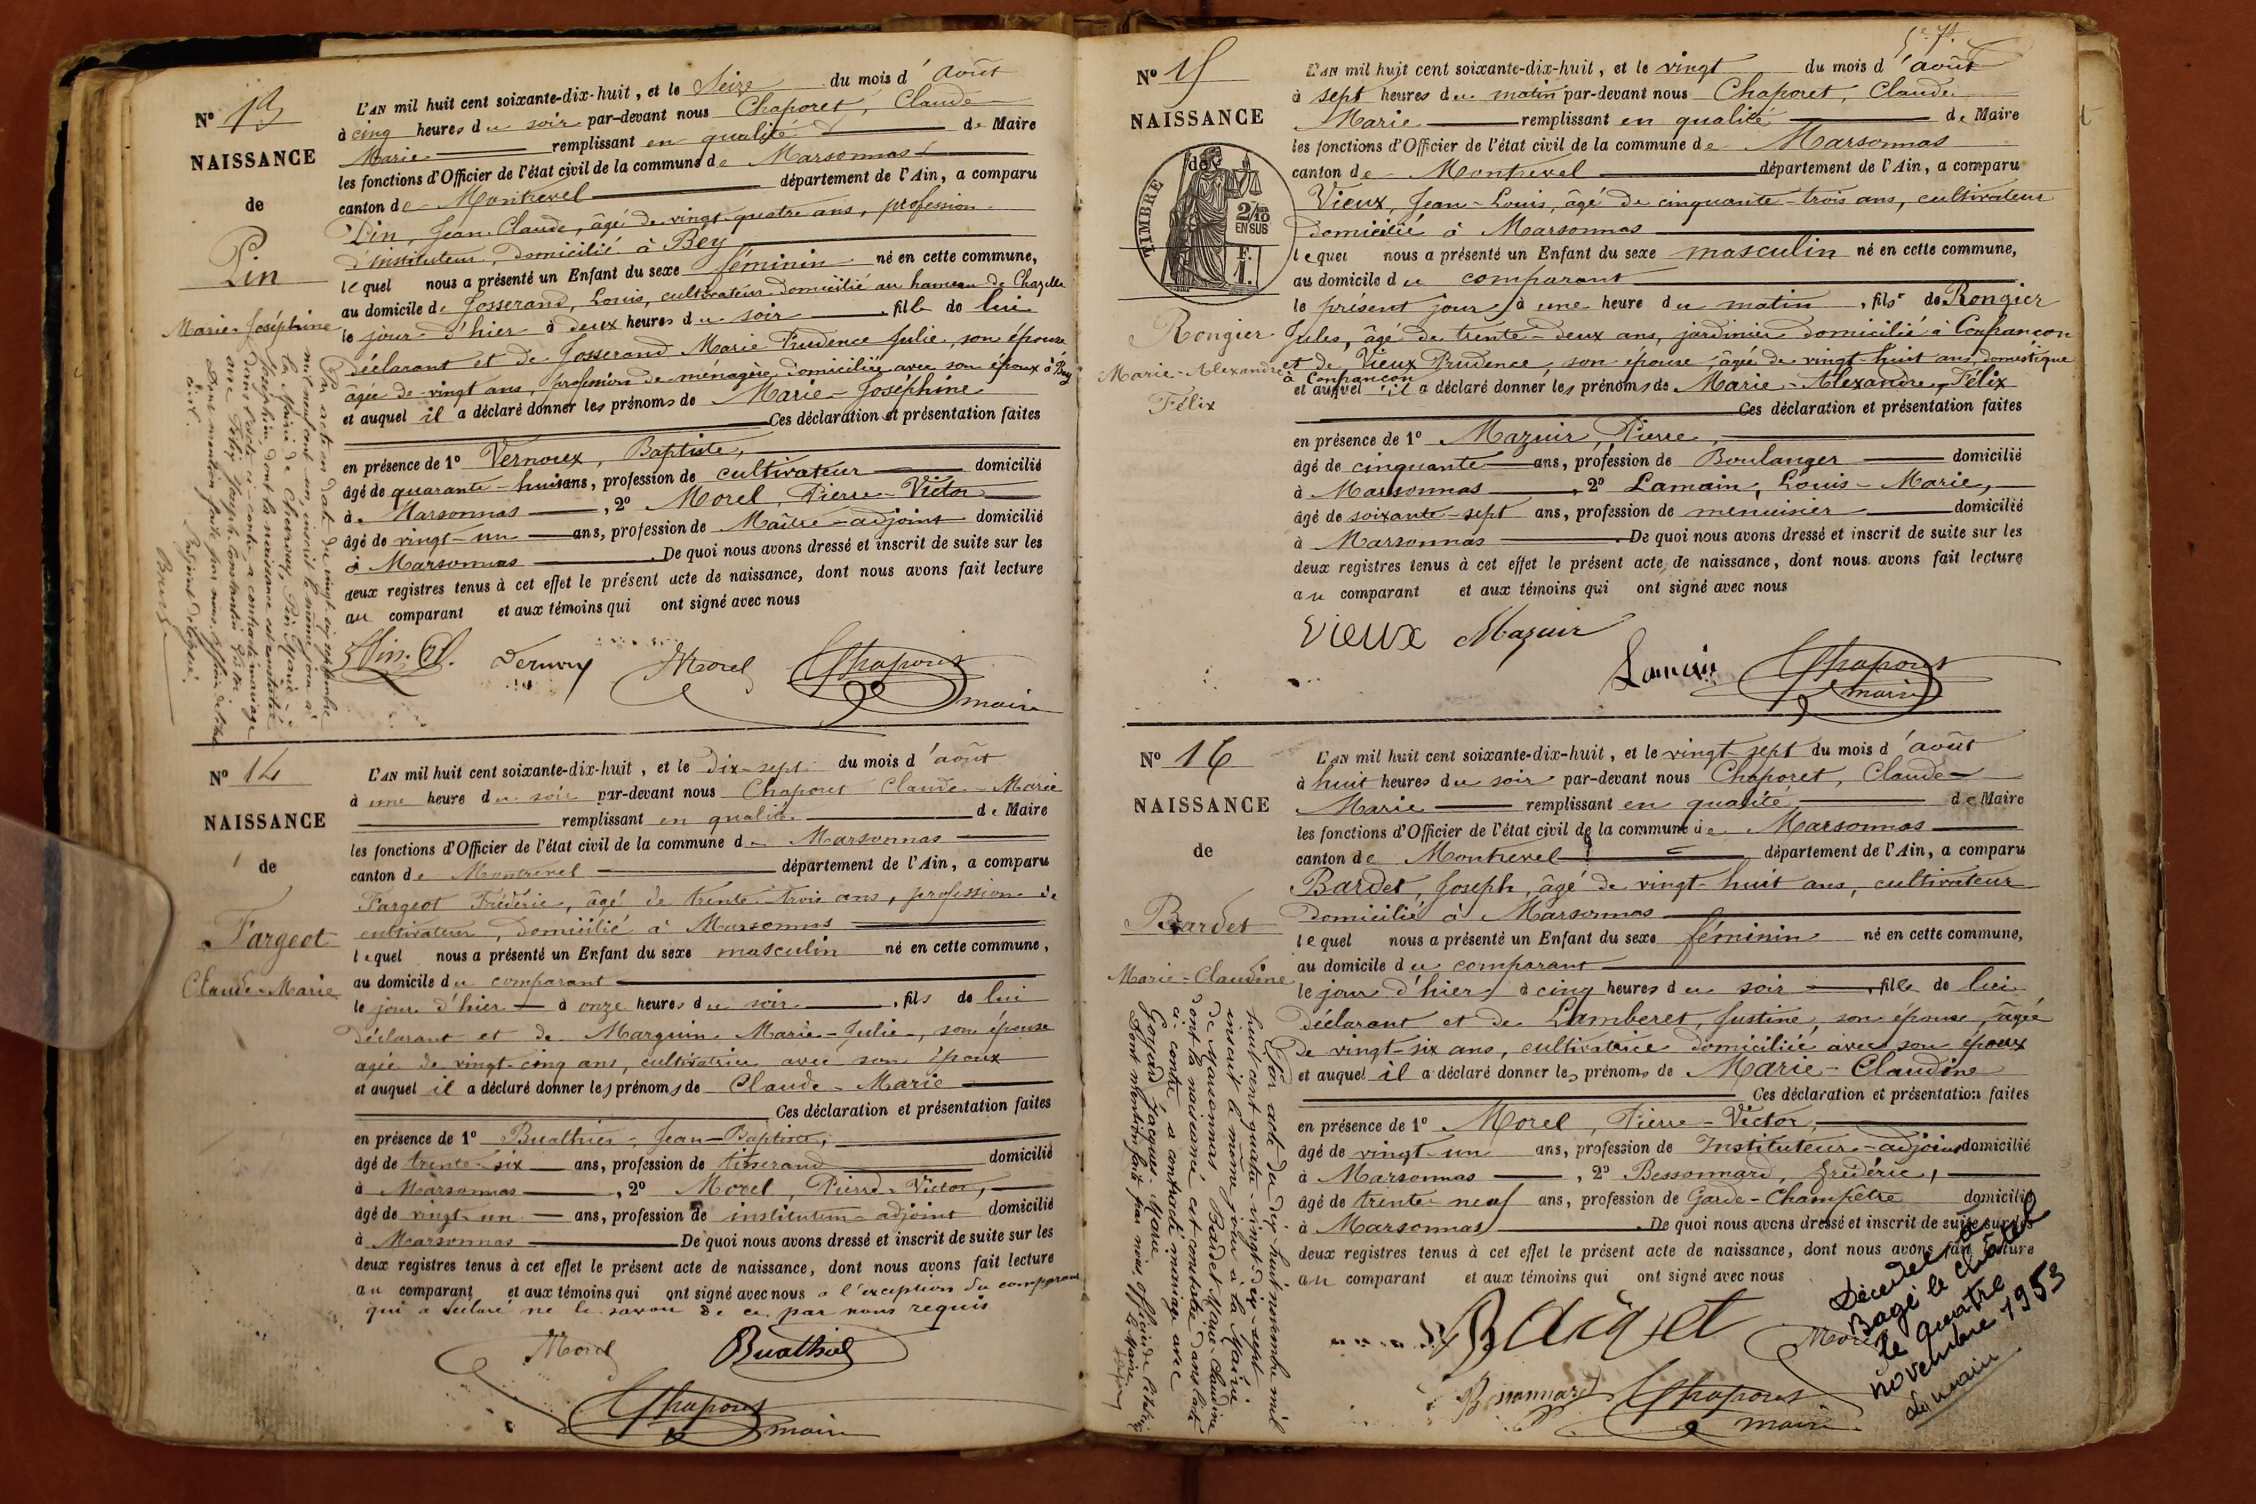 Nº 13
NAISSANCE
de
Pin
Marie-Joséphine
L'AN mil huit cent soixante-dix-huit, et le Seize du mois d'août
à cinq heures du soir par-devant nous Chaporet, Claude
Marie remplissant en qualité de Maire
les fonctions d'Officier de l'état civil de la commune de Marsonnas
canton de Montrevel département de l'Ain, a comparu
Pin, Jean-Claude, âgé de vingt-quatre ans, profession
d'instituteur, domicilié à Bey
lequel nous a présenté un Enfant du sexe féminin né en cette commune,
au domicile de Josserand, Louis, cultivateur domicilié au hameau de Chazelle
le jour d'hier à deux heures du soir, fille de lui
déclarant et de Josserand Marie Prudence Julie, son épouse
âgée de vingt ans, profession de ménagère, domiciliée avec son époux à Bey
et auquel il a déclaré donner les prénoms de Marie-Joséphine
Ces déclaration et présentation faites
en présence de 1º Vernoux, Baptiste,
âgé de quarante-huit ans, profession de cultivateur domicilié
à Marsonnas, 2º Morel, Pierre-Victor
âgé de vingt-un ans, profession de Maître-adjoint domicilié
à Marsonnas. De quoi nous avons dressé et inscrit de suite sur les
deux registres tenus à cet effet le présent acte de naissance, dont nous avons fait lecture
au comparant et aux témoins qui ont signé avec nous
Par acte en date du vingt-six septembre
mil neuf cent un, inscrit le même jour à
la Mairie de Chevroux, Pin Marie-
Joséphine, dont la naissance est constatée
dans l'acte ci-contre a contracté mariage
avec
Dont mention faite par nous, officier de l'état
civil.
Pin. Cl. Vernoux Morel Chaporet
maire
Nº 14
NAISSANCE
de
Fargeot
Claude-Marie
L'AN mil huit cent soixante-dix-huit, et le dix-sept du mois d'août
à une heure du soir par-devant nous Chaporet Claude-Marie
remplissant en qualité de Maire
les fonctions d'Officier de l'état civil de la commune de Marsonnas
canton de Montrevel département de l'Ain, a comparu
Fargeot Frédéric, âgé de trente-trois ans, profession de
cultivateur, domicilié à Marsonnas
lequel nous a présenté un Enfant du sexe masculin né en cette commune,
au domicile du comparant
le jour d'hier à onze heures du soir, fils de lui
déclarant et de Marguin Marie-Julie, son épouse
agée de vingt-cinq ans, cultivatrice avec son époux
et auquel il a déclaré donner les prénoms de Claude-Marie
Ces déclaration et présentation faites
en présence de 1º Buathier, Jean-Baptiste,
âgé de trente-six ans, profession de tisserand domicilié
à Marsonnas, 2º Morel, Pierre-Victor,
âgé de vingt-un ans, profession de instituteur-adjoint domicilié
à Marsonnas De quoi nous avons dressé et inscrit de suite sur les
deux registres tenus à cet effet le présent acte de naissance, dont nous avons fait lecture
au comparant et aux témoins qui ont signé avec nous à l'exception du comparant
qui a déclaré ne le savoir de ce par nous requis
Morel Buathier
Chaporet
maire
Nº 15
NAISSANCE
de
TIMBRE
2/10
EN SUS
1 F.
Rongier
Marie-Alexandre
Félix
L'AN mil huit cent soixante-dix-huit, et le vingt du mois d'août
à sept heures du matin par-devant nous Chaporet, Claude
Marie remplissant en qualité de Maire
les fonctions d'Officier de l'état civil de la commune de Marsonnas
canton de Montrevel département de l'Ain, a comparu
Vieux, Jean-Louis, âgé de cinquante-trois ans, cultivateur
domicilié à Marsonnas
lequel nous a présenté un Enfant du sexe masculin né en cette commune,
au domicile du comparant
le présent jour à une heure du matin, fils de Rongier
Jules, âgé de trente-deux ans, jardinier domicilié à Confrançon
et de Vieux Prudence, son épouse, âgée de vingt-huit ans, domestique
à Confrançon
et auquel il a déclaré donner les prénoms de Marie-Alexandre, Félix
Ces déclaration et présentation faites
en présence de 1º Mazuir, Pierre,
âgé de cinquante ans, profession de Boulanger domicilié
à Marsonnas, 2º Lamain, Louis-Marie,
âgé de soixante-sept ans, profession de menuisier domicilié
à Marsonnas. De quoi nous avons dressé et inscrit de suite sur les
deux registres tenus à cet effet le présent acte de naissance, dont nous avons fait lecture
au comparant et aux témoins qui ont signé avec nous
Vieux Mazuir
Lamain Chaporet
maire
Nº 16
NAISSANCE
de
Bardet
Marie-Claudine
L'AN mil huit cent soixante-dix-huit, et le vingt-sept du mois d'août
à huit heures du soir par-devant nous Chaporet, Claude
Marie remplissant en qualité de Maire
les fonctions d'Officier de l'état civil de la commune de Marsonnas
canton de Montrevel département de l'Ain, a comparu
Bardet, Joseph, âgé de vingt-huit ans, cultivateur
domicilié à Marsonnas
lequel nous a présenté un Enfant du sexe féminin né en cette commune,
au domicile du comparant
le jour d'hier à cinq heures du soir, fille de lui
déclarant et de Lamberet, Justine, son épouse, âgée
de vingt-six ans, cultivatrice domiciliée avec son époux
et auquel il a déclaré donner les prénoms de Marie-Claudine
Ces déclaration et présentation faites
en présence de 1º Morel, Pierre-Victor,
âgé de vingt-un ans, profession de Instituteur-adjoint domicilié
à Marsonnas, 2º Bessonnard, Frédéric,
âgé de trente-neuf ans, profession de Garde-Champêtre domicilié
à Marsonnas. De quoi nous avons dressé et inscrit de suite sur les
deux registres tenus à cet effet le présent acte de naissance, dont nous avons fait lecture
au comparant et aux témoins qui ont signé avec nous
Par acte du dix-huit novembre mil
huit cent quatre-vingt-dix-sept
inscrit le même jour à la Mairie
de Marsonnas Bardet Marie-Claudine
dont la naissance est constatée dans l'acte
ci-contre a contracté mariage avec
Gonand Jacques-Marie
Dont mention faite par nous, officier de l'état civil
Le Maire
Bardet Morel
Bessonnard Chaporet
maire
Décédée à
Bagé le Châtel
le quatre
novembre 1953